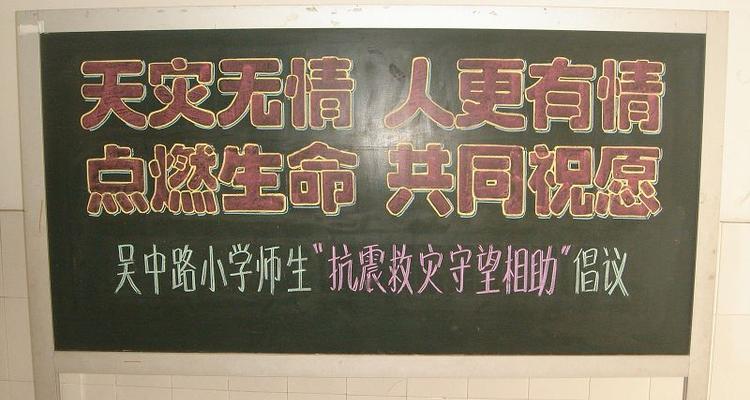 天灾无情 人更有情
点燃生命 共同祝愿
吴中路小学师生"抗震救灾守望相助"倡议